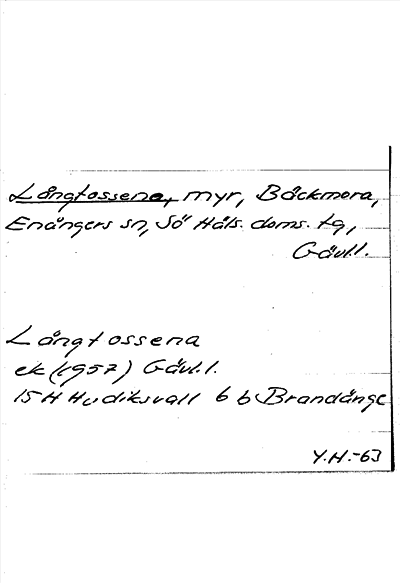 Långtossena, myr, Bäckmora,
Enångers sn, Sö Häls. doms. tg,
Gävl.l.
Långtossena
ek (1957) Gävl.l.
15H Hudiksvall 6 b Brandänge
Y.H.-63